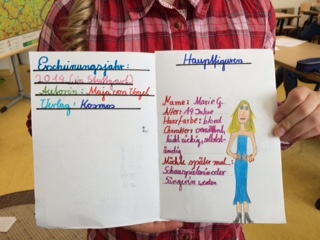 Erscheinungsjahr:
2014 (in Stuttgart)
Autorin: Maja von Vogel
Verlag: Kosmos
Hauptfiguren
Name: Marie G.
Alter: 14 Jahre
Haarfarbe: blond
Charakter:
zickig, selbst-
ständig
Möchte später mal:
Schauspielerin oder
Sängerin werden